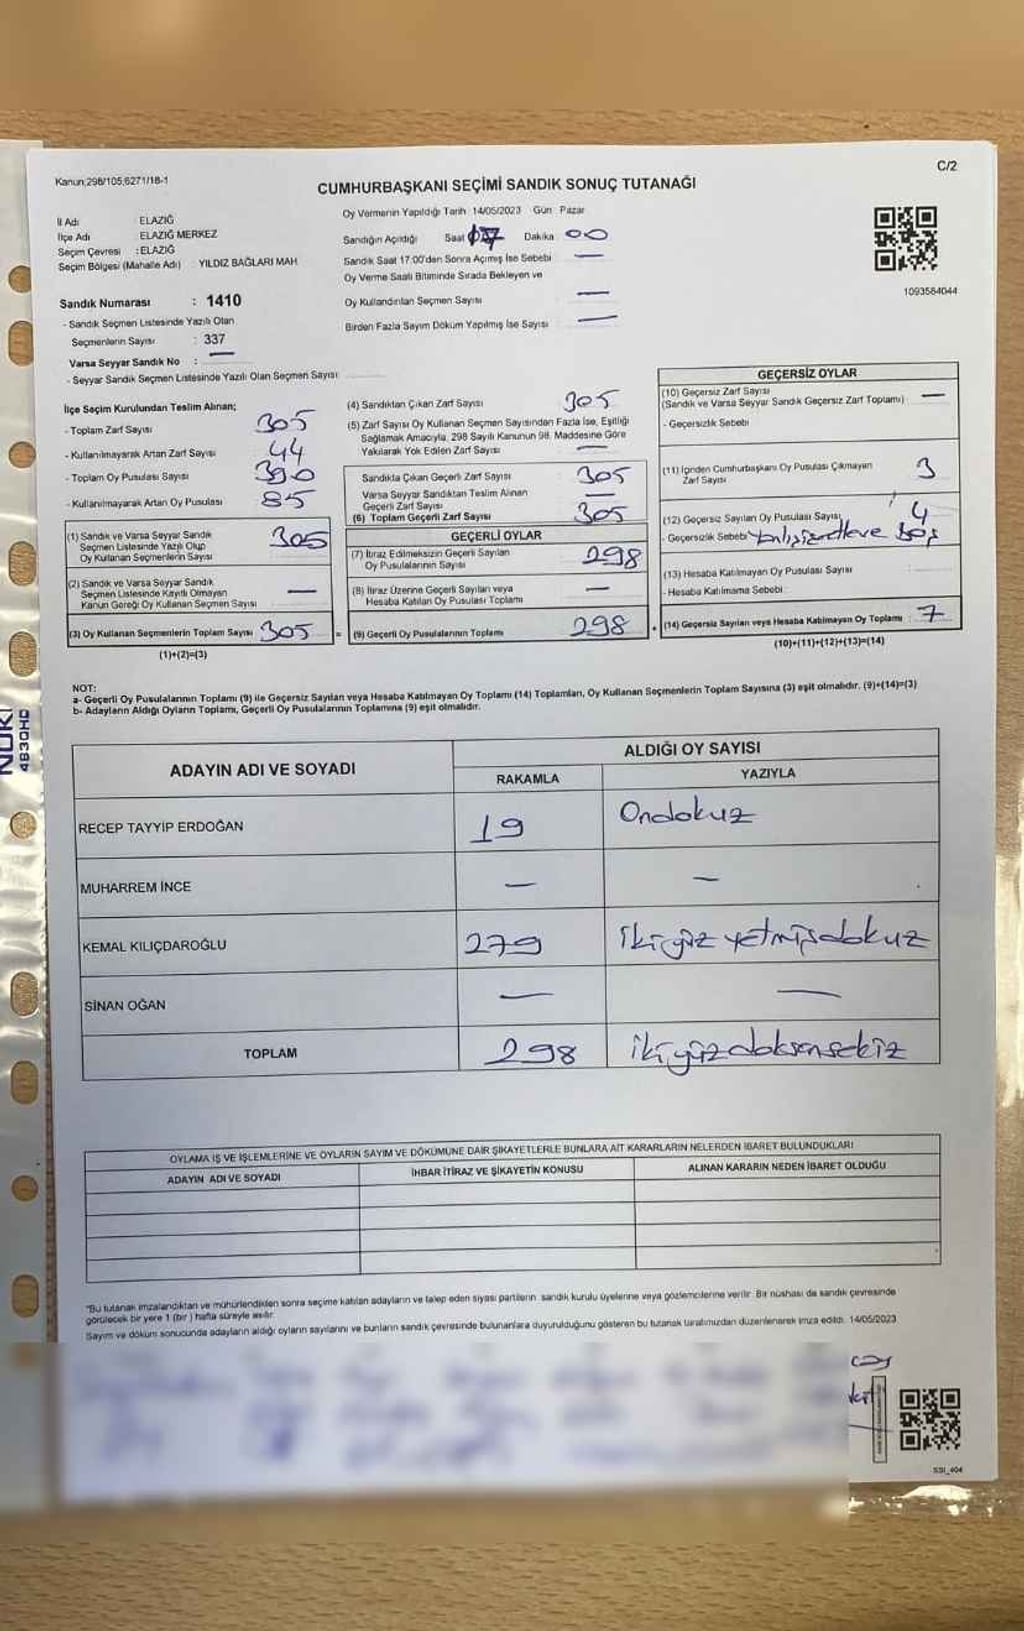 C/2
Kanun:298/105,6271/18-1
CUMHURBAŞKANI SEÇİMİ SANDIK SONUÇ TUTANAĞI
İl Adı : ELAZIĞ
İlçe Adı : ELAZIĞ MERKEZ
Seçim Çevresi : ELAZIĞ
Seçim Bölgesi (Mahalle Adı) : YILDIZ BAĞLARI MAH
Sandık Numarası : 1410
- Sandık Seçmen Listesinde Yazılı Olan
Seçmenlerin Sayısı : 337
Varsa Seyyar Sandık No : —
- Seyyar Sandık Seçmen Listesinde Yazılı Olan Seçmen Sayısı
Oy Vermenin Yapıldığı Tarih 14/05/2023 Gün Pazar
Sandığın Açıldığı Saat Dakika 00
Sandık Saat 17.00'den Sonra Açılmış İse Sebebi —
Oy Verme Saati Bitiminde Sırada Bekleyen ve
Oy Kullandırılan Seçmen Sayısı —
Birden Fazla Sayım Döküm Yapılmış İse Sayısı —
1093584044
İlçe Seçim Kurulundan Teslim Alınan;
- Toplam Zarf Sayısı 305
- Kullanılmayarak Artan Zarf Sayısı 44
- Toplam Oy Pusulası Sayısı 390
- Kullanılmayarak Artan Oy Pusulası 85
(1) Sandık ve Varsa Seyyar Sandık
Seçmen Listesinde Yazılı Olup
Oy Kullanan Seçmenlerin Sayısı 305
(2) Sandık ve Varsa Seyyar Sandık
Seçmen Listesinde Kayıtlı Olmayan
Kanun Gereği Oy Kullanan Seçmen Sayısı —
(3) Oy Kullanan Seçmenlerin Toplam Sayısı 305
(1)+(2)=(3)
(4) Sandıktan Çıkan Zarf Sayısı 305
(5) Zarf Sayısı Oy Kullanan Seçmen Sayısından Fazla İse, Eşitliği
Sağlamak Amacıyla, 298 Sayılı Kanunun 98. Maddesine Göre
Yakılarak Yok Edilen Zarf Sayısı —
Sandıkta Çıkan Geçerli Zarf Sayısı 305
Varsa Seyyar Sandıktan Teslim Alınan
Geçerli Zarf Sayısı —
(6) Toplam Geçerli Zarf Sayısı 305
GEÇERLİ OYLAR
(7) İtiraz Edilmeksizin Geçerli Sayılan
Oy Pusulalarının Sayısı 298
(8) İtiraz Üzerine Geçerli Sayılan veya
Hesaba Katılan Oy Pusulası Toplamı —
= (9) Geçerli Oy Pusulalarının Toplamı 298
GEÇERSİZ OYLAR
(10) Geçersiz Zarf Sayısı
(Sandık ve Varsa Seyyar Sandık Geçersiz Zarf Toplamı) —
- Geçersizlik Sebebi
(11) İçinden Cumhurbaşkanı Oy Pusulası Çıkmayan
Zarf Sayısı 3
(12) Geçersiz Sayılan Oy Pusulası Sayısı 4
- Geçersizlik Sebebi boş
(13) Hesaba Katılmayan Oy Pusulası Sayısı
- Hesaba Katılmama Sebebi
+ (14) Geçersiz Sayılan veya Hesaba Katılmayan Oy Toplamı 7
(10)+(11)+(12)+(13)=(14)
NOT:
a- Geçerli Oy Pusulalarının Toplamı (9) ile Geçersiz Sayılan veya Hesaba Katılmayan Oy Toplamı (14) Toplamları, Oy Kullanan Seçmenlerin Toplam Sayısına (3) eşit olmalıdır. (9)+(14)=(3)
b- Adayların Aldığı Oyların Toplamı, Geçerli Oy Pusulalarının Toplamına (9) eşit olmalıdır.
ADAYIN ADI VE SOYADI
ALDIĞI OY SAYISI
RAKAMLA YAZIYLA
RECEP TAYYİP ERDOĞAN 19 Ondokuz
MUHARREM İNCE — —
KEMAL KILIÇDAROĞLU 279 ikiyüz yetmişdokuz
SİNAN OĞAN — —
TOPLAM 298 ikiyüzdoksensekiz
OYLAMA İŞ VE İŞLEMLERİNE VE OYLARIN SAYIM VE DÖKÜMÜNE DAİR ŞİKAYETLERLE BUNLARA AİT KARARLARIN NELERDEN İBARET BULUNDUKLARI
ADAYIN ADI VE SOYADI
İHBAR İTİRAZ VE ŞİKAYETİN KONUSU
ALINAN KARARIN NEDEN İBARET OLDUĞU
"Bu tutanak imzalandıktan ve mühürlendikten sonra seçime katılan adayların ve talep eden siyasi partilerin sandık kurulu üyelerine veya gözlemcilerine verilir. Bir nüshası da sandık çevresinde
görülecek bir yere 1 (bir) hafta süreyle asılır.
Sayım ve döküm sonucunda adayların aldığı oyların sayılarını ve bunların sandık çevresinde bulunanlara duyurulduğunu gösteren bu tutanak tarafımızdan düzenlenerek imza edildi. 14/05/2023
SSI_404
4830HD